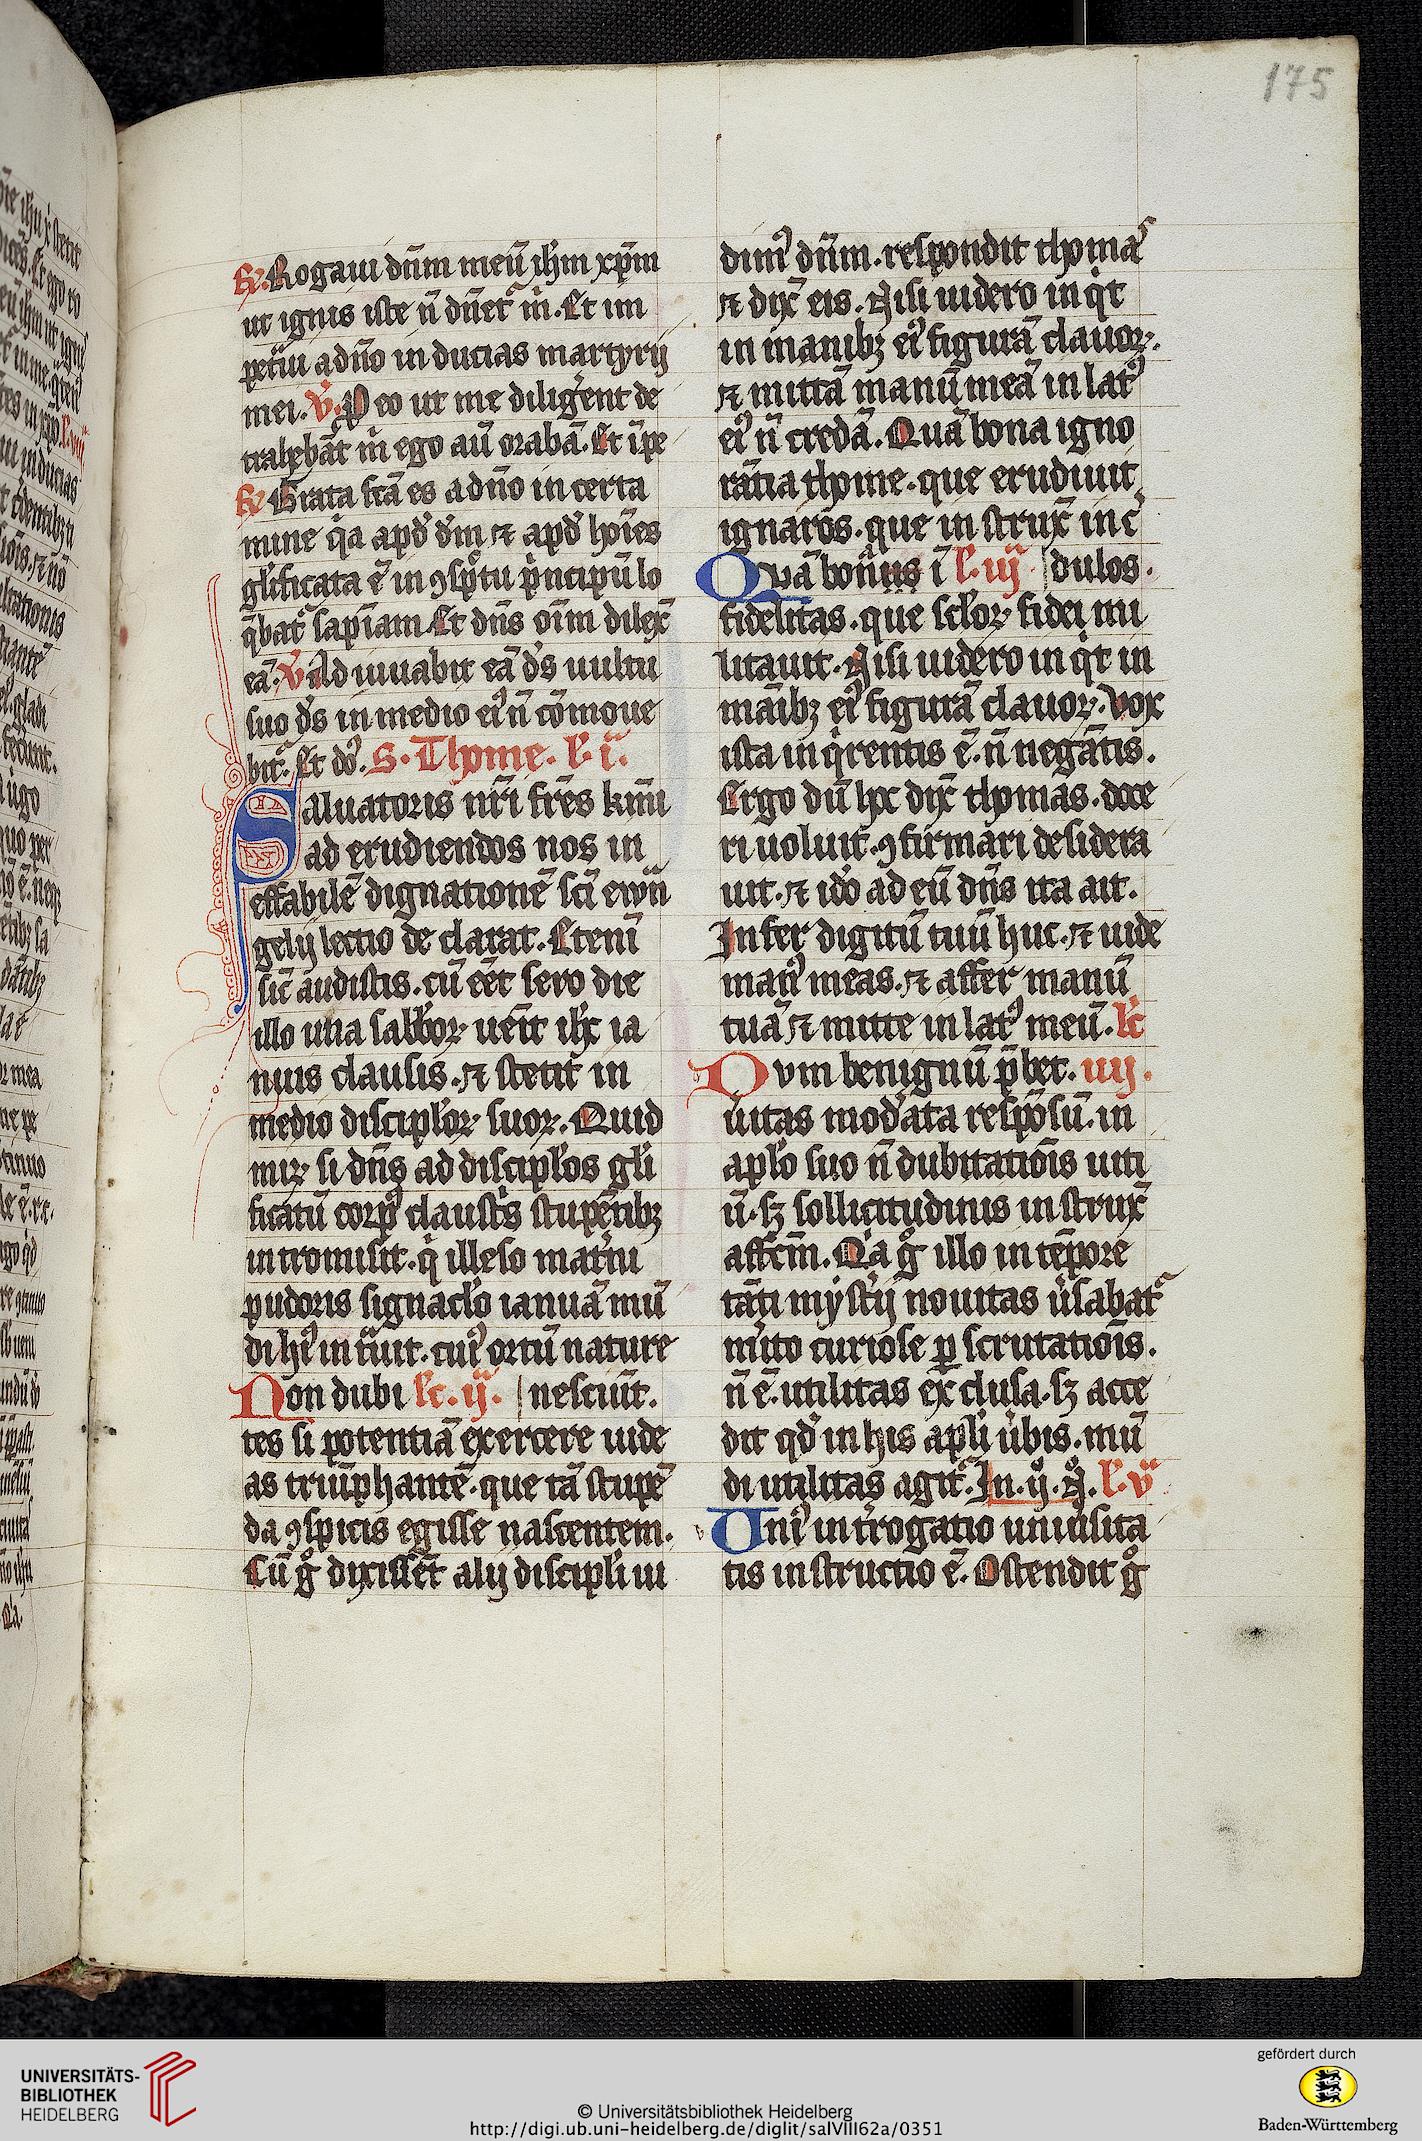 175
R. Rogaui dn̄m meū ih̄m xp̄m
ut ignis iste n̄ dn̄et᷑ m̄. Et im
pet̄ui a dn̄o inducias martyrij
mei. V. P eo ut me diligērent de
trahebāt m̄ ego aū orabā. Et īpe
R. Grata fc̄a es a dn̄o in certa
mine q̄a apd̄ dm̄ ⁊ apd̄ hoīes
gl̄ificata ē in ꝯsp̄tu p̄ncipū lo
q̄bat᷑ sapīam Et dn̄s oīm dilex̄
eā. V. Ad iuuabit eā ds̄ uultu
suo ds̄ in medio eiꝰ n̄ cōmoue
bit᷑. Et do᷑. S. Thome. l. i.
Saluatoris nr̄i fr̄es km̄i
ad erudiendos nos in
effabilē dignationē sc̄i ewn̄
gelij lectio declarat. Etenī
sic̄ audistis. cū eēt sero die
illo una sabb̄oꝝ uēit ih̄c ia
nuis clausis. ⁊ stetit in
medio discipl̄oꝝ suoꝝ. Quid
mirꝝ si dn̄s ad discipl̄os gl̄i
ficatū corpꝰ claustīs stupētibꝫ
intromisit. q̄ illeso mat̄ni
pudoris signacl̄o ianuā mū
di hꝰ int̄uit. cuiꝰ ortū nature
Non dubi lc̄. ij. | nesciūt.
tes si potentiā exercere uide
as triūphantē. que tā stupē
da ꝯspicis egisse nascentem.
Cū g̊ dixissēt alij discipl̄i ui
dimꝰ dn̄m. respondit thomas
⁊ dix̄ eis. Nisi uidero in q̄t
in manibꝫ eiꝰ figurā clauoꝝ.
⁊ mittā manū meā in latꝰ
eiꝰ n̄ credā. Quā bona igno
rātia thome. que erudiuit
ignaros. que instrux̄ inc̄
Quā bon̄ inis ī l. iij | dulos.
fidelitas. que scl̄oꝝ fidei mi
litauit. Nisi uidero in q̄t in
māibꝫ eiꝰ figurā clauoꝝ. Vox
ista inq̄rentis ē. n̄ negātis.
Ergo dū hc̄ dix̄ thomas. doce
ri uoluit. ꝯfirmari desidera
uit. ⁊ ido̅ ad eū dn̄s ita ait.
Infer digitū tuū huc. ⁊ uide
manꝰ meas. ⁊ affer manū
tuā ⁊ mitte in latꝰ meū. lc̄
Dvm benignū p̄bet. iiij.
uitas mod̄ata respōsū. in
apl̄o suo n̄ dubitatiōis uiti
ū. sꝫ sollicitudinis instrux̄
affc̄m. Q̄a g̊ illo in tēpore
tāti myst̄ij nouitas ūsabat᷑
m̄ito curiose ꝑscrutatiōis.
n̄ ē. utilitas exclusa. sꝫ acce
dit qd̄ in his apl̄i ūbis. mū
di utilitas agit᷑. In. ij. N̊. l. v
Vniꝰ int̄rogatio uniūsita
tis instructio ē. Ostendit g̊
UNIVERSITÄTS-
BIBLIOTHEK
HEIDELBERG
© Universitätsbibliothek Heidelberg
http://digi.ub.uni-heidelberg.de/diglit/salVIII62a/0351
gefördert durch
Baden-Württemberg